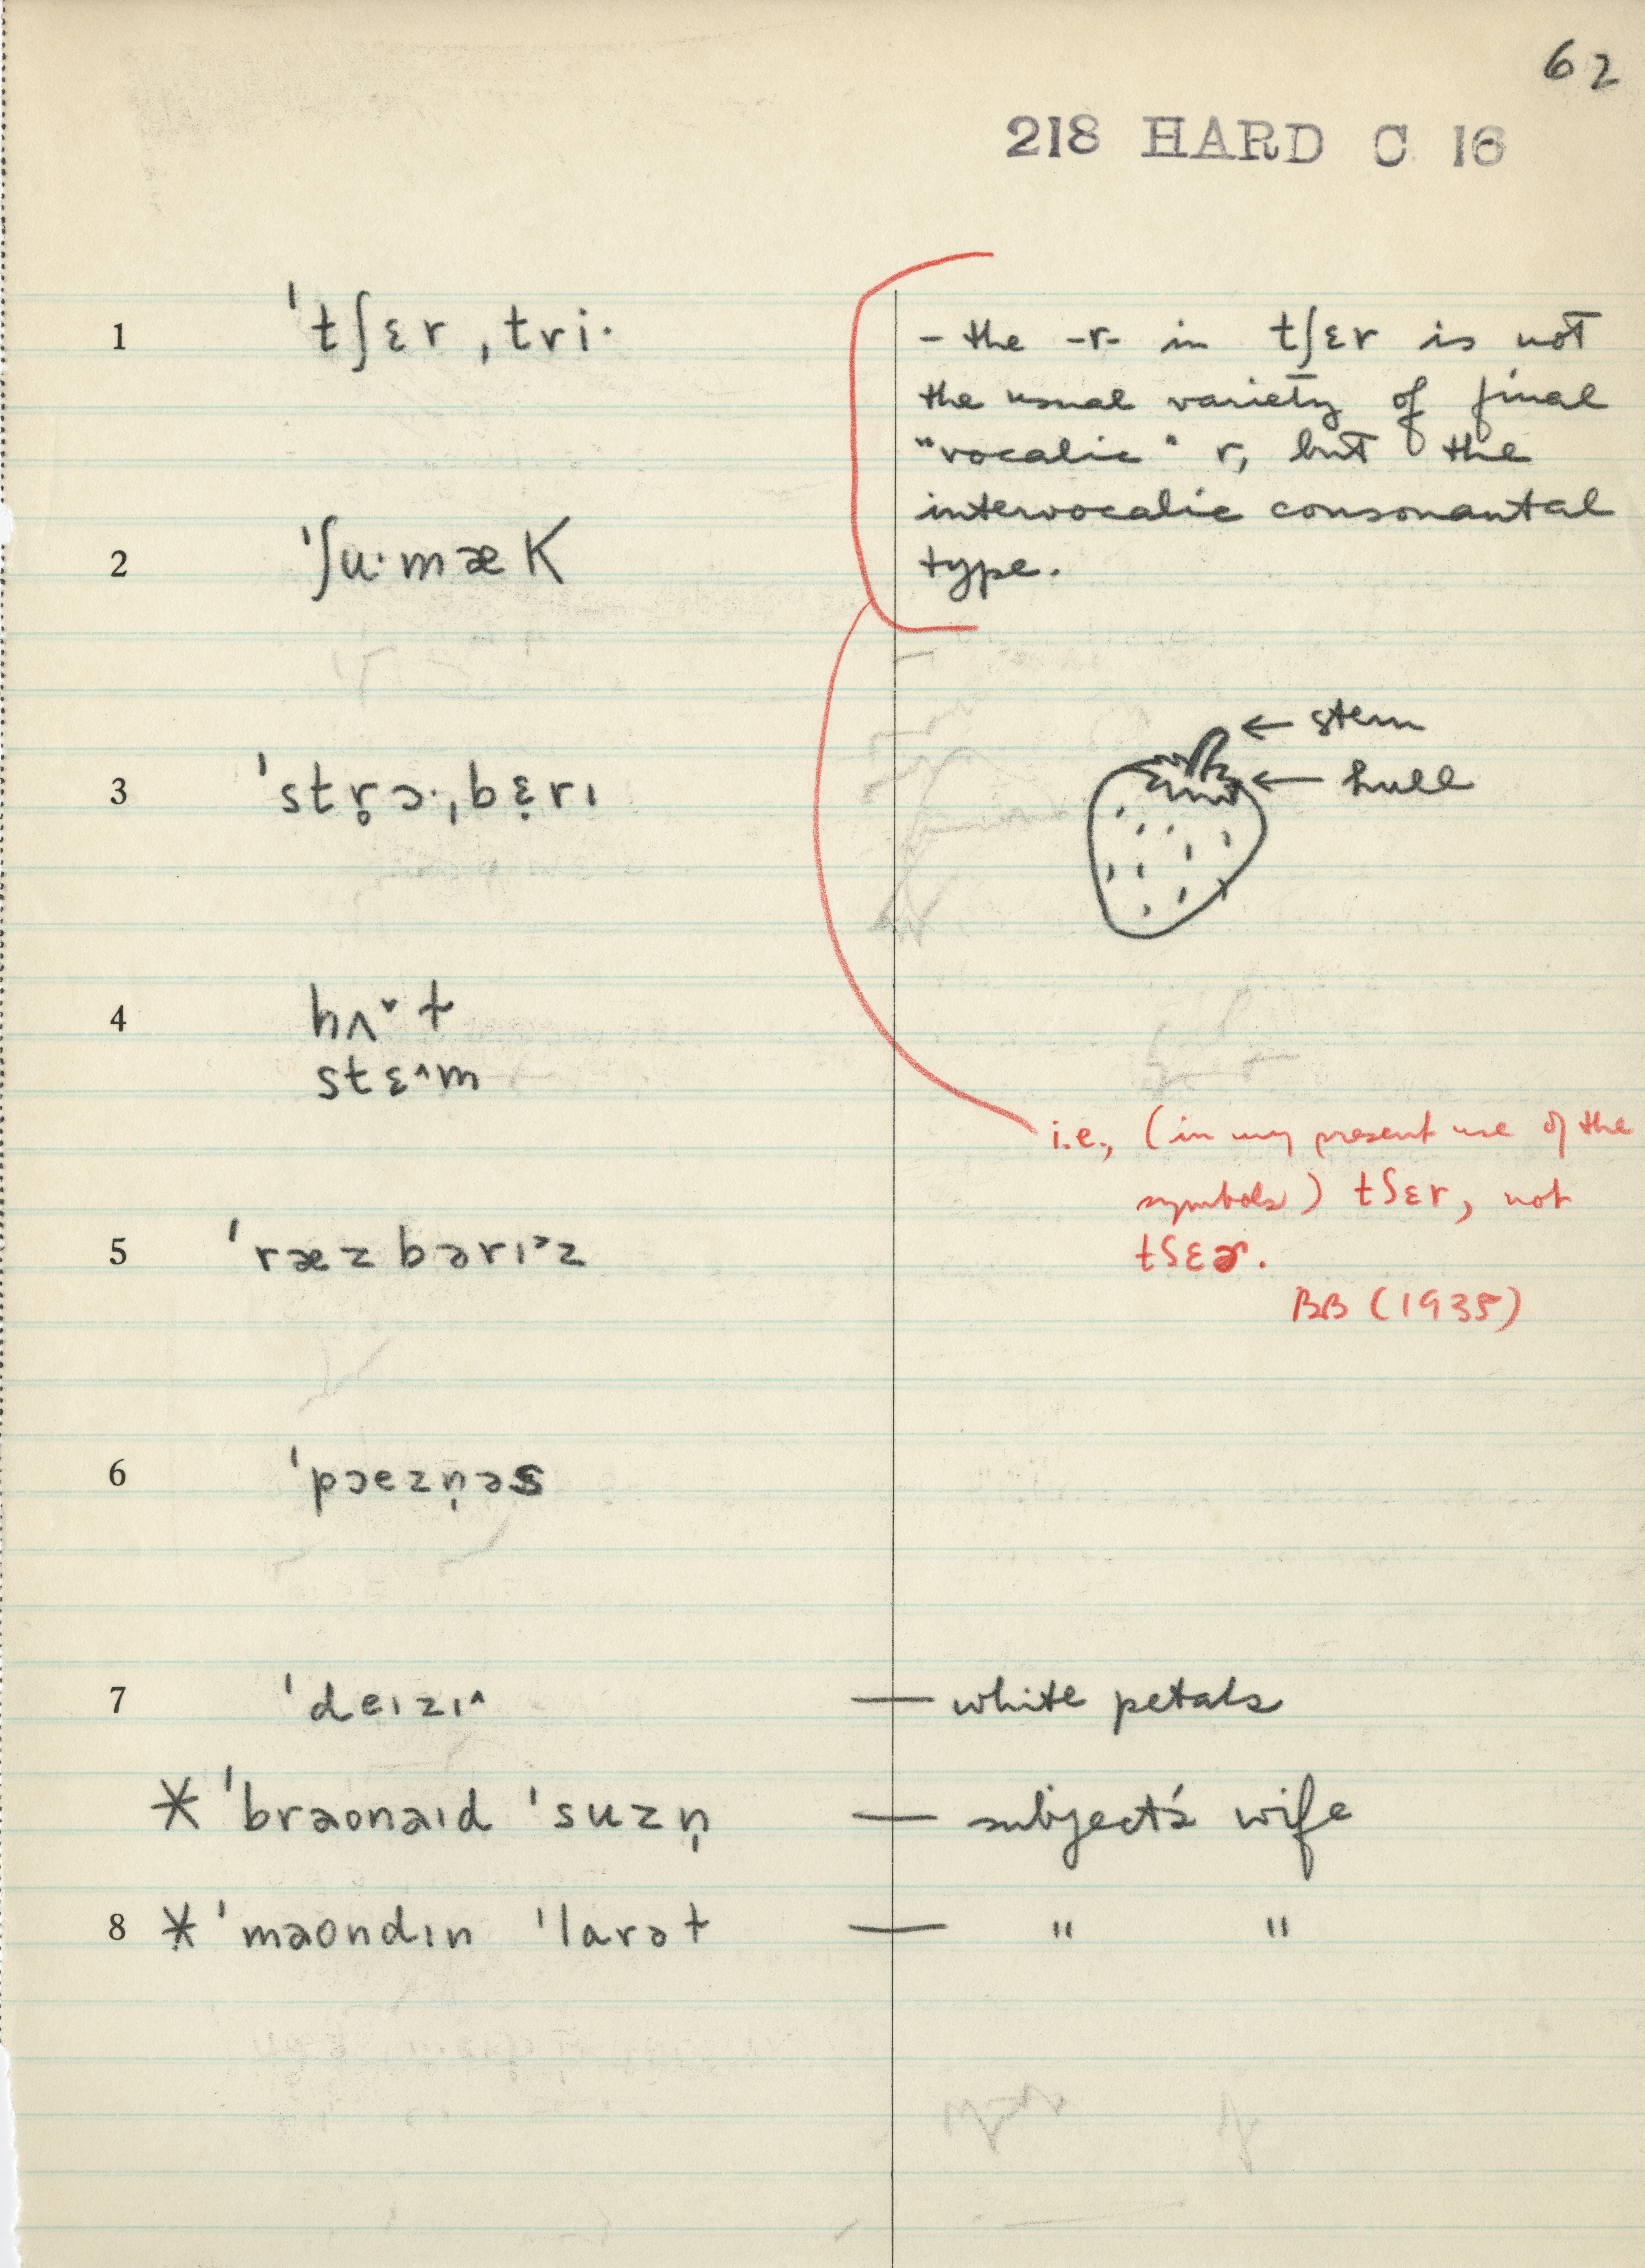 62
218 HARD C 16
1 ˈtʃɛr ˌtri·
- the -r- in tʃɛr is not
the usual variety of final
"vocalic" r, but the
intervocalic consonantal
type.
2 ˈʃu·mæK
3 ˈstr̥ɔ·ˌbɛ̣rɪ
← stem
← hull
4 hʌ˅ɫ
stɛ^m
i.e., (in my present use of the
symbols) tʃɛr, not
tʃɛɚ.
BB (1935)
5 ˈræzbərɪᵊz
6 ˈpɔezn̩əs
7 ˈdeɪzɪ^ — white petals
* ˈbraonaɪd ˈsuzn̩ — subject's wife
8 * ˈmaondɪn ˈlarəɫ — " "